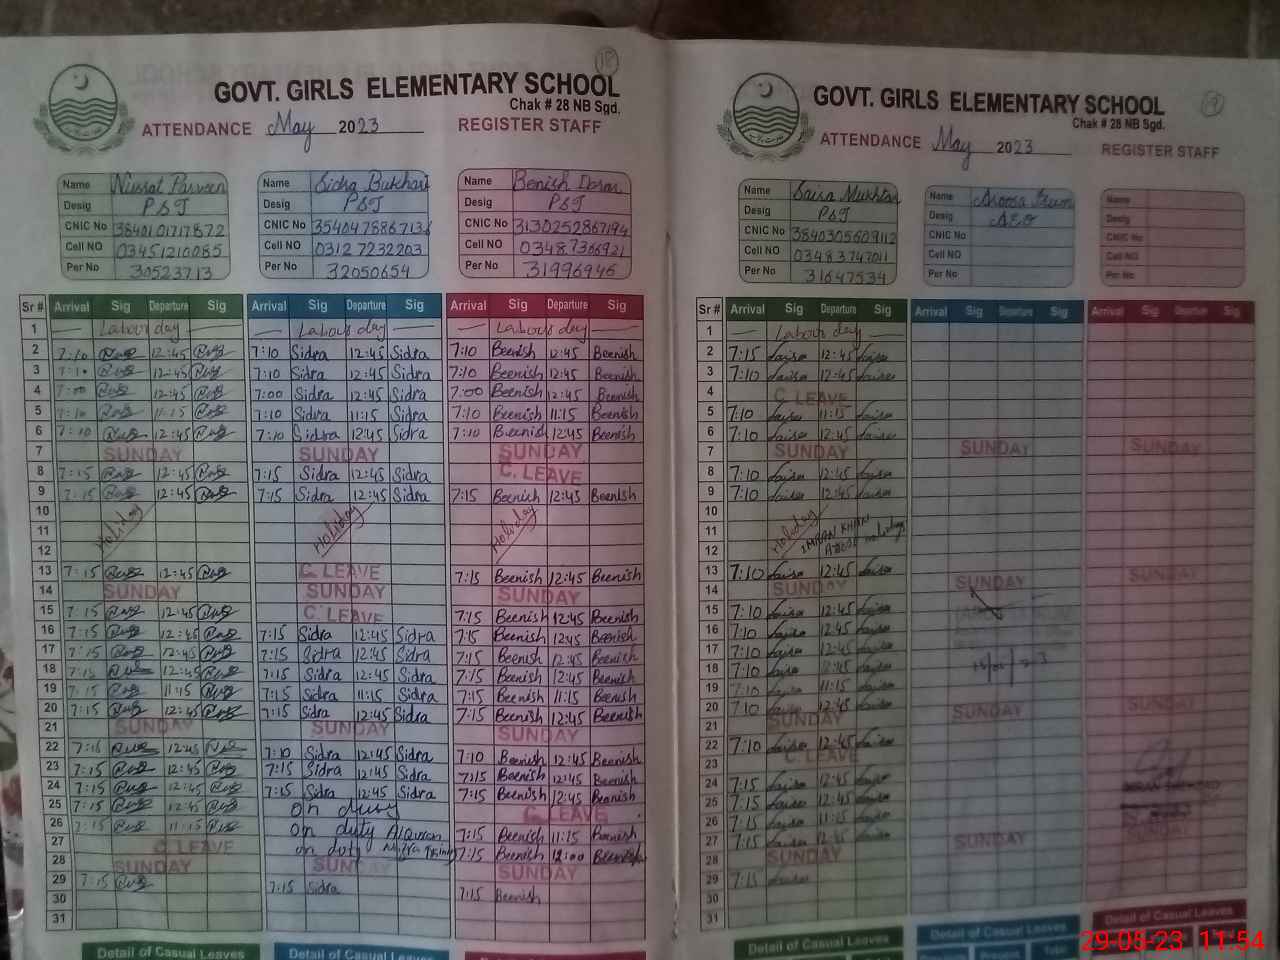 18
GOVT. GIRLS ELEMENTARY SCHOOL
Chak # 28 NB Sgd.
ATTENDANCE May 2023 REGISTER STAFF
Name Nusrat Parveen
Desig PST
CNIC No 3840101717872
Cell NO 03451210085
Per No 30523713
Name Sidra Bukhari
Desig PST
CNIC No
Cell NO 0312 7232203
Per No 32050654
Name Benish
Desig PST
CNIC No 3130252867194
Cell NO 03487366921
Per No 31996946
Sr # Arrival Sig Departure Sig Arrival Sig Departure Sig Arrival Sig Departure Sig
1 Labour day Labour day Labour day
2 7:10 12:45 7:10 Sidra 12:45 Sidra 7:10 Beenish 12:45 Beenish
3 7:10 12:45 7:10 Sidra 12:45 Sidra 7:10 Beenish 12:45 Beenish
4 7:00 12:45 7:00 Sidra 12:45 Sidra 7:00 Beenish 12:45 Beenish
5 7:10 11:15 7:10 Sidra 11:15 Sidra 7:10 Beenish 11:15 Beenish
6 7:10 12:45 7:10 Sidra 12:45 Sidra 7:10 Beenish 12:45 Beenish
7 SUNDAY SUNDAY SUNDAY
8 7:15 12:45 7:15 Sidra 12:45 Sidra C. LEAVE
9 7:15 12:45 7:15 Sidra 12:45 Sidra 7:15 Beenish 12:45 Beenish
10
11 Holiday Holiday Holiday
12
13 7:15 12:45 C. LEAVE 7:15 Beenish 12:45 Beenish
14 SUNDAY SUNDAY SUNDAY
15 7:15 12:45 C. LEAVE 7:15 Beenish 12:45 Beenish
16 7:15 12:45 7:15 Sidra 12:45 Sidra 7:15 Beenish 12:45 Beenish
17 7:15 12:45 7:15 Sidra 12:45 Sidra 7:15 Beenish 12:45 Beenish
18 7:15 12:45 7:15 Sidra 12:45 Sidra 7:15 Beenish 12:45 Beenish
19 7:15 11:15 7:15 Sidra 11:15 Sidra 7:15 Beenish 11:15 Beenish
20 7:15 12:45 7:15 Sidra 12:45 Sidra 7:15 Beenish 12:45 Beenish
21 SUNDAY SUNDAY SUNDAY
22 7:15 12:45 7:10 Sidra 12:45 Sidra 7:10 Beenish 12:45 Beenish
23 7:15 12:45 7:15 Sidra 12:45 Sidra 7:15 Beenish 12:45 Beenish
24 7:15 12:45 7:15 Sidra 12:45 Sidra 7:15 Beenish 12:45 Beenish
25 7:15 12:45 on duty C. LEAVE
26 7:15 11:15 on duty 7:15 Beenish 11:15 Beenish
27 C. LEAVE on duty 7:15 Beenish 12:00 Beenish
28 SUNDAY SUNDAY SUNDAY
29 7:15 7:15 Sidra 7:15 Beenish
30
31
Detail of Casual Leaves Detail of Casual Leaves Detail of Casual Leaves
19
GOVT. GIRLS ELEMENTARY SCHOOL
Chak # 28 NB Sgd.
ATTENDANCE May 2023 REGISTER STAFF
Name Saira Mukhtar
Desig PST
CNIC No 3840305609112
Cell NO 03483747011
Per No 31647534
Name
Desig AEO
CNIC No
Cell NO
Per No
Name
Desig
CNIC No
Cell NO
Per No
Sr # Arrival Sig Departure Sig Arrival Sig Departure Sig Arrival Sig Departure Sig
1 Labour day
2 7:15 Saira 12:45 Saira
3 7:10 Saira 12:45 Saira
4 C. LEAVE
5 7:10 Saira 11:15 Saira
6 7:10 Saira 12:45 Saira
7 SUNDAY SUNDAY SUNDAY
8 7:10 Saira 12:45 Saira
9 7:10 Saira 12:45 Saira
10
11 Holiday IMRAN KHAN
12
13 7:10 Saira 12:45 Saira
14 SUNDAY SUNDAY SUNDAY
15 7:10 Saira 12:45 Saira
16 7:10 Saira 12:45 Saira
17 7:10 Saira 12:45 Saira
18 7:10 Saira 12:45 Saira
19 7:10 Saira 11:15 Saira
20 7:10 Saira 12:45 Saira
21 SUNDAY SUNDAY SUNDAY
22 7:10 Saira 12:45 Saira
23 C. LEAVE
24 7:15 Saira 12:45 Saira
25 7:15 Saira 12:45 Saira
26 7:15 Saira 11:15 Saira
27 7:15 Saira 12:45 Saira
28 SUNDAY SUNDAY SUNDAY
29 7:15 Saira
30
31
Detail of Casual Leaves Detail of Casual Leaves Detail of Casual Leaves
29-05-23 11:54